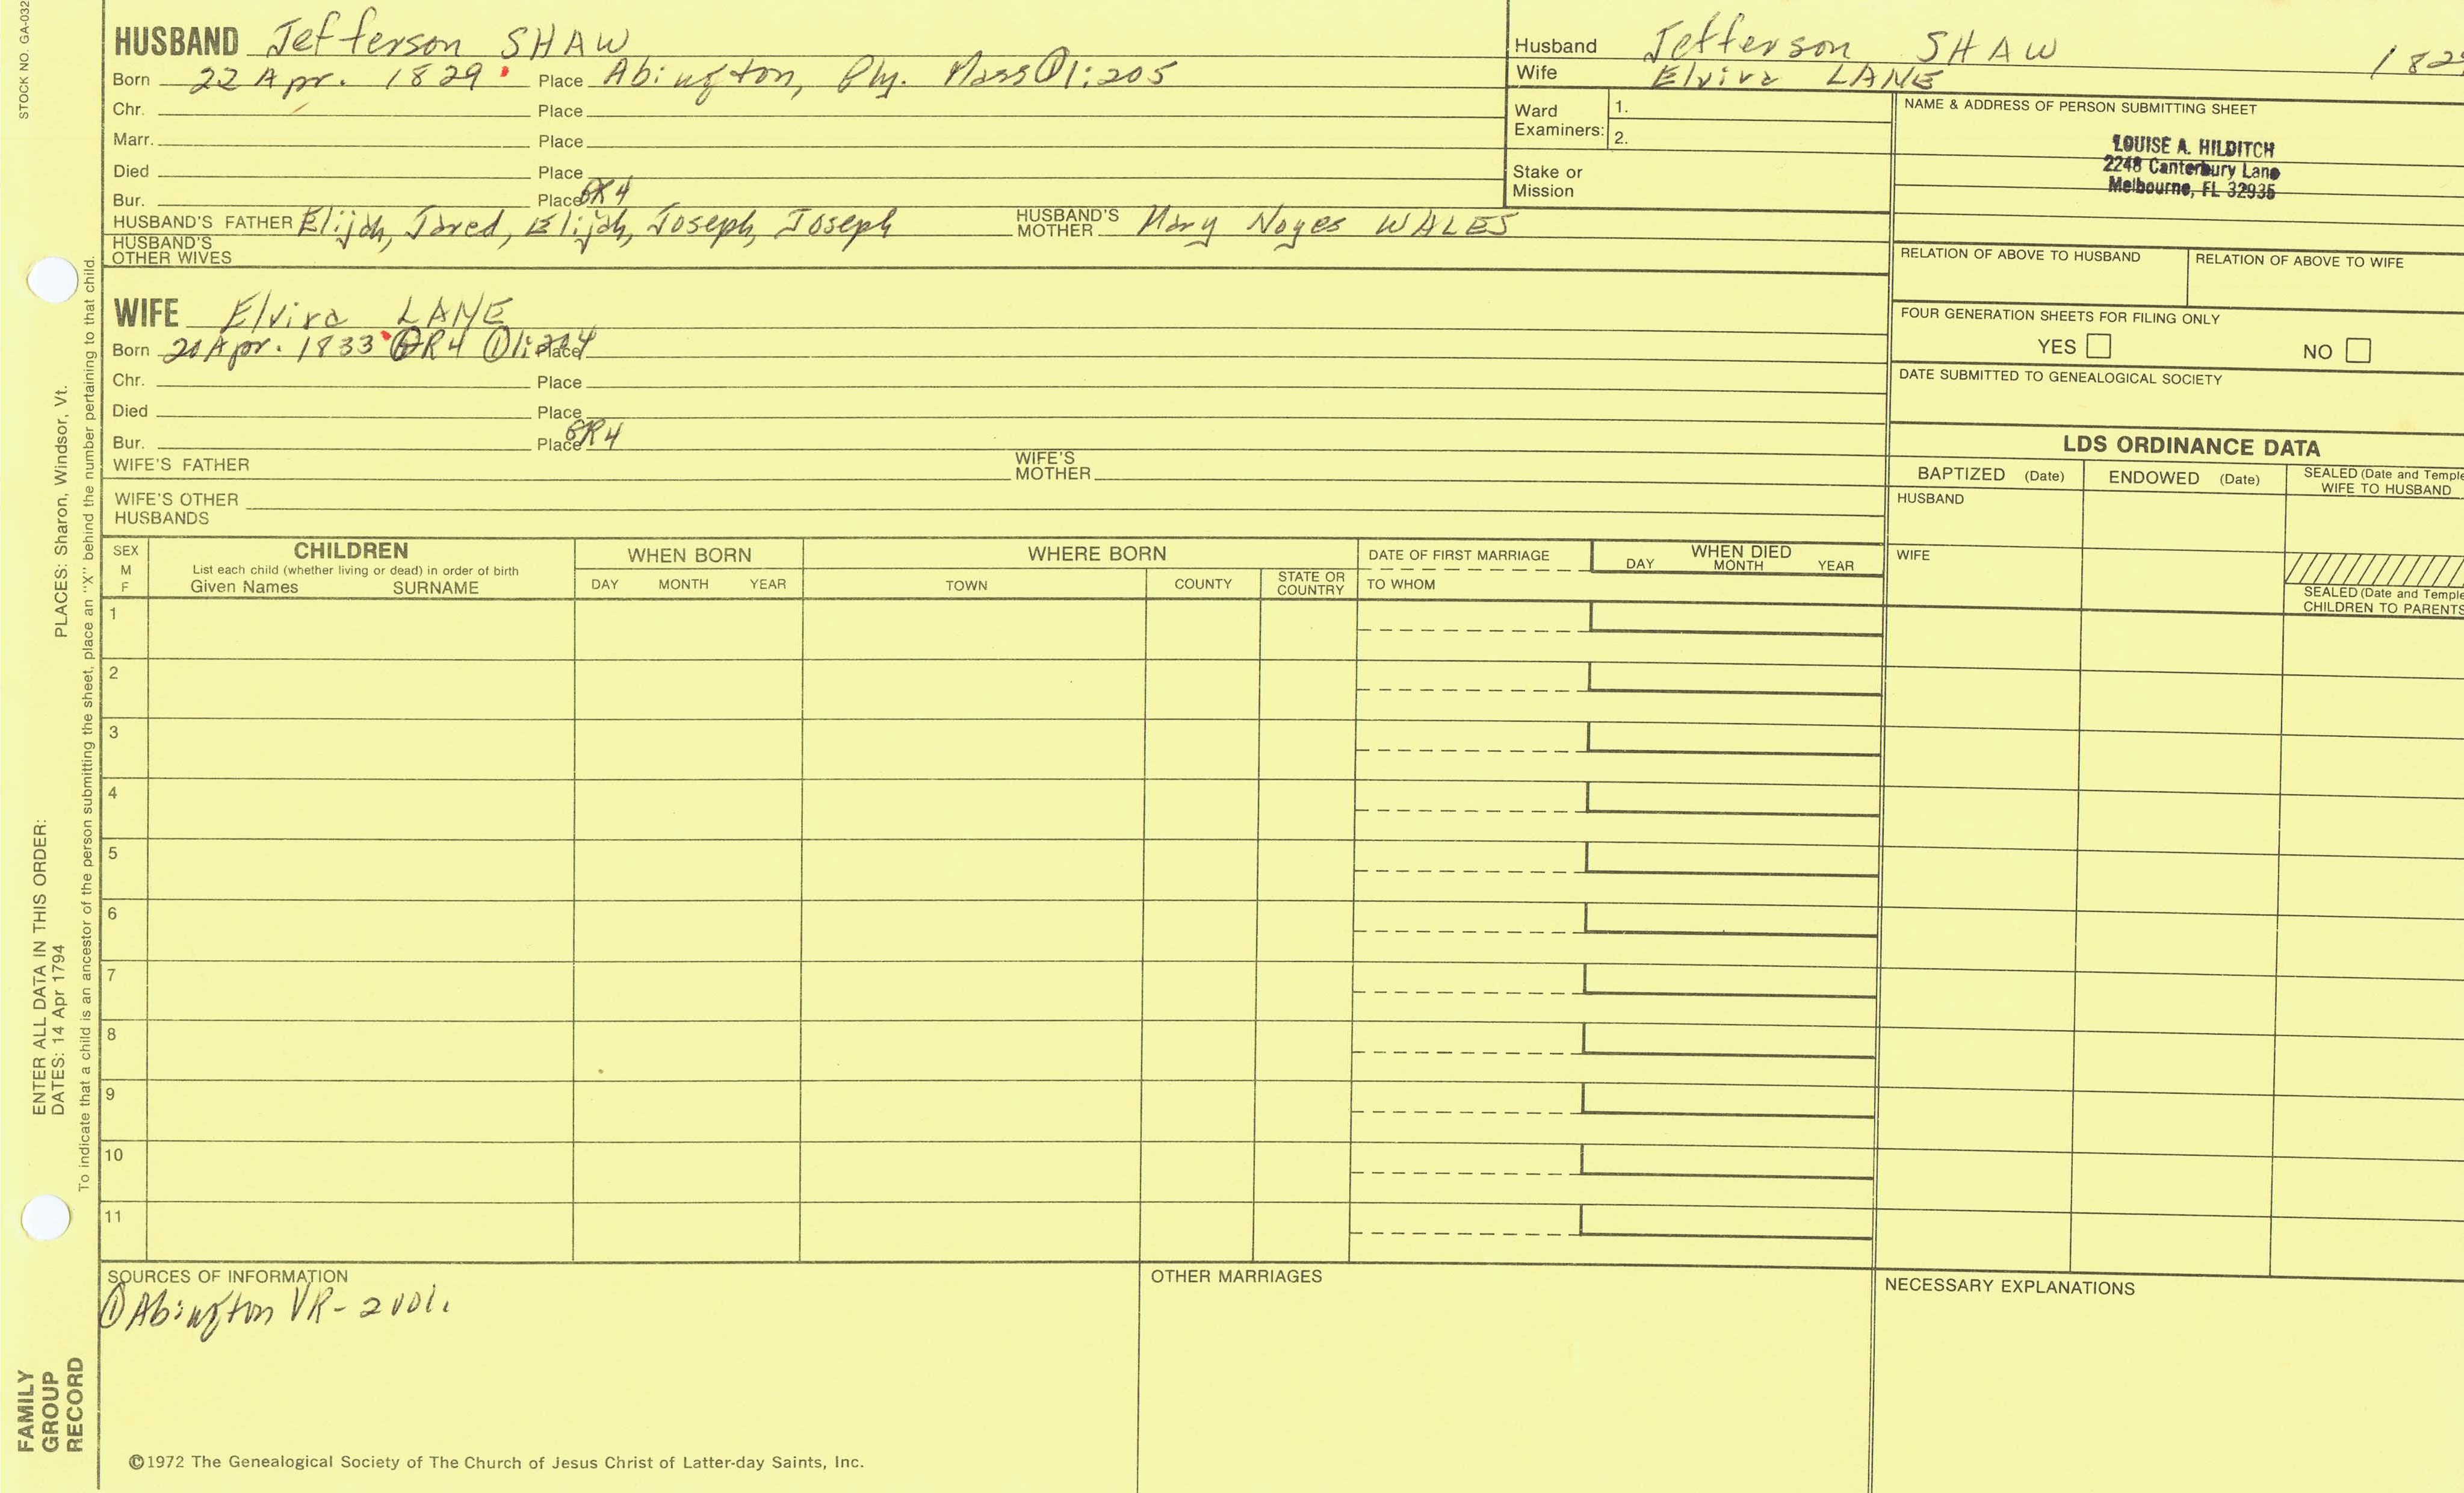 STOCK NO. GA-032
HUSBAND Jefferson SHAW
Born 22 Apr. 1829 Place Abington, Ply. Mass ①1:205
Chr. Place
Marr. Place
Died Place
Bur. Place GR4
HUSBAND'S FATHER Elijah, Jared, Elijah, Joseph, Joseph HUSBAND'S MOTHER Mary Noyes WALES
HUSBAND'S OTHER WIVES
WIFE Elvira LANE
Born 20 Apr. 1833 GR4 ①1: Place
Chr. Place
Died Place
Bur. Place GR4
WIFE'S FATHER WIFE'S MOTHER
WIFE'S OTHER HUSBANDS
Husband Jefferson SHAW 182
Wife Elvira LANE
Ward Examiners: 1.
2.
Stake or Mission
NAME & ADDRESS OF PERSON SUBMITTING SHEET
LOUISE A. HILDITCH
2248 Canterbury Lane
Melbourne, FL 32935
RELATION OF ABOVE TO HUSBAND RELATION OF ABOVE TO WIFE
FOUR GENERATION SHEETS FOR FILING ONLY
YES NO
DATE SUBMITTED TO GENEALOGICAL SOCIETY
LDS ORDINANCE DATA
BAPTIZED (Date) ENDOWED (Date) SEALED (Date and Temple
WIFE TO HUSBAND
HUSBAND
WIFE
SEALED (Date and Temple
CHILDREN TO PARENTS
SEX M F
CHILDREN
List each child (whether living or dead) in order of birth
Given Names SURNAME
WHEN BORN
DAY MONTH YEAR
WHERE BORN
TOWN COUNTY STATE OR COUNTRY
DATE OF FIRST MARRIAGE
TO WHOM
WHEN DIED
DAY MONTH YEAR
1
2
3
4
5
6
7
8
9
10
11
SOURCES OF INFORMATION
①Abington VR - 2 vol.
OTHER MARRIAGES
NECESSARY EXPLANATIONS
©1972 The Genealogical Society of The Church of Jesus Christ of Latter-day Saints, Inc.
FAMILY
GROUP
RECORD
ENTER ALL DATA IN THIS ORDER:
DATES: 14 Apr 1794 PLACES: Sharon, Windsor, Vt.
To indicate that a child is an ancestor of the person submitting the sheet, place an "X" behind the number pertaining to that child.